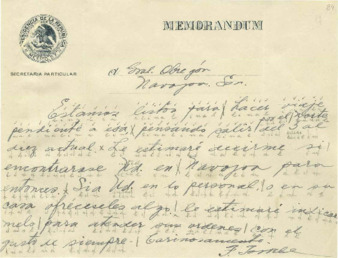 PRESIDENCIA DE LA REPUBLICA
MEXICO
MEMORANDUM
SECRETARIA PARTICULAR
A Gral. Obregón
Navojoa, Son.
Estamos listos para hacer viaje
pendiente a esa, pensando salir del 5 al
diez actual. Le estimaré decirme si
encontrarase Ud. en Navojoa para
entonces. Si a Ud. en lo personal o en su
casa ofrécesele algo le estimaré indicár
melo para atender sus órdenes con el
gusto de siempre. Cariñosamente.